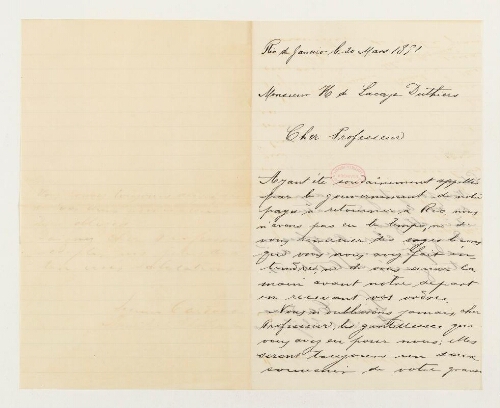 Rio de Janeiro le 20 Mars 1891
Monsieur H de Lacaze Duthiers
Cher Professeur
Ayant été soudainement appellés
par le gouvernement de notre
pays à retourner à Rio nous
n'avons pas eu le temps, ni de
vous remercier des
que vous nous avez fait en
ni de vous serrer la
main avant notre départ
en recevant vos
Nous n'oublierons jamais, cher
Professeur, les gentillesses que
vous avez eu pour nous; elles
seront toujours un doux
souvenir de votre grande